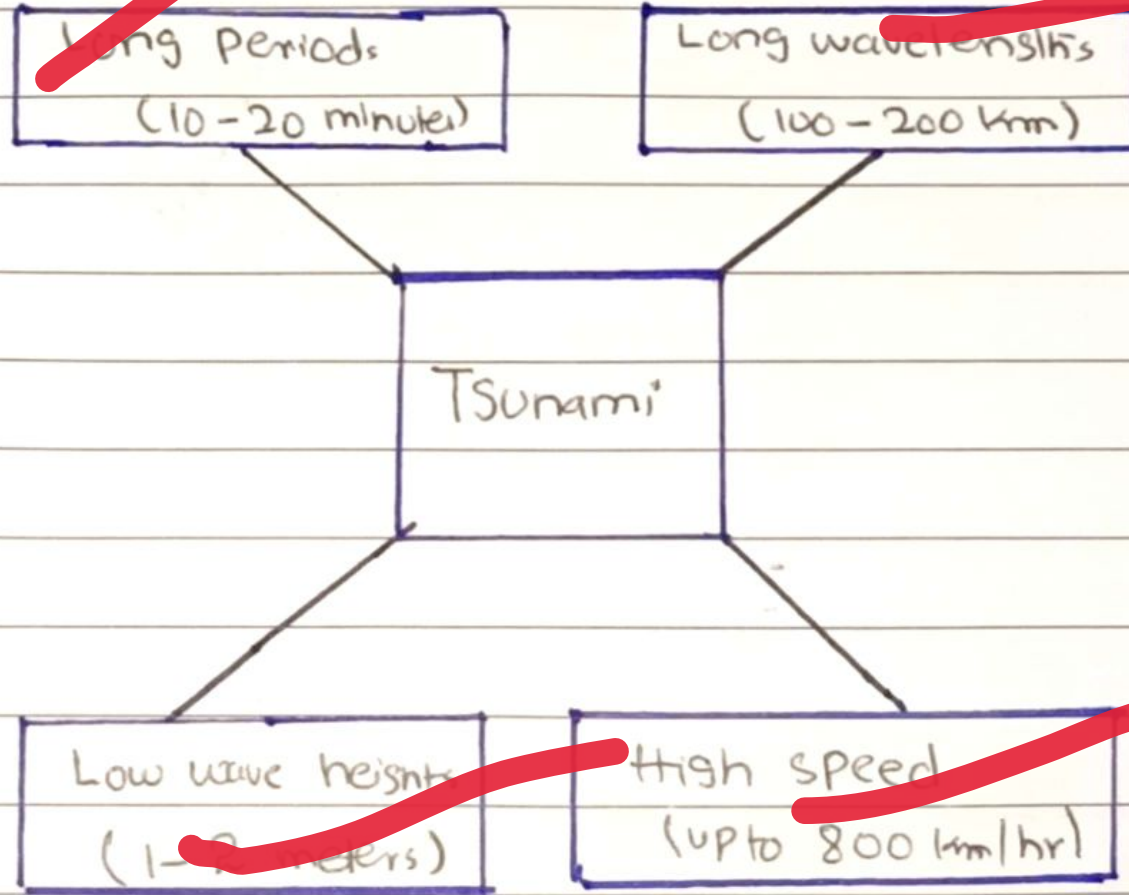 Long periods
(10-20 minutes)
Long wavelengths
(100-200 km)
Tsunami
Low wave heights
(1- meters)
High speed
(upto 800 km/hr)